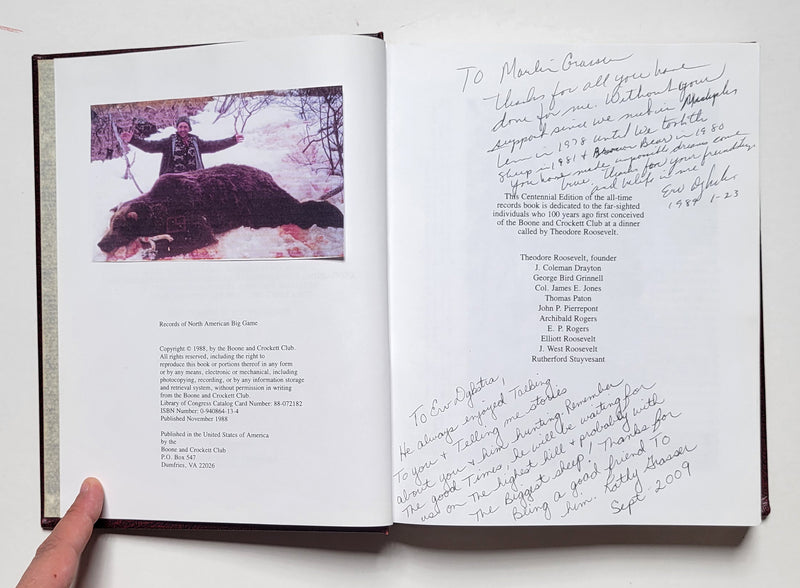 Records of North American Big Game
Copyright © 1988, by the Boone and Crockett Club.
All rights reserved, including the right to
reproduce this book or portions thereof in any form
or by any means, electronic or mechanical, including
photocopying, recording, or by any information storage
and retrieval system, without permission in writing
from the Boone and Crockett Club.
Library of Congress Catalog Card Number: 88-072182
ISBN Number: 0-940864-13-4
Published November 1988
Published in the United States of America
by the
Boone and Crockett Club
P.O. Box 547
Dumfries, VA 22026
To Marlin Grasser
Thanks for all you have
done for me. Without your
support since we met in
in 1978 until we took the
sheep in 1981 & Brown Bear in 1980
You have made impossible dreams come
true. Thanks for your friendship
and belief in me!
Erv
1989 1-23
This Centennial Edition of the all-time
records book is dedicated to the far-sighted
individuals who 100 years ago first conceived
of the Boone and Crockett Club at a dinner
called by Theodore Roosevelt.
Theodore Roosevelt, founder
J. Coleman Drayton
George Bird Grinnell
Col. James E. Jones
Thomas Paton
John P. Pierrepont
Archibald Rogers
E. P. Rogers
Elliott Roosevelt
J. West Roosevelt
Rutherford Stuyvesant
To Erv Dykstra,
He always enjoyed Talking
To you & Telling me stories
about you & him hunting. Remember
The good Times, he will be waiting for
us on The highest hill & probably with
The Biggest sheep! Thanks for
Being a good friend To
him. Kathy Grasser
Sept. 2009